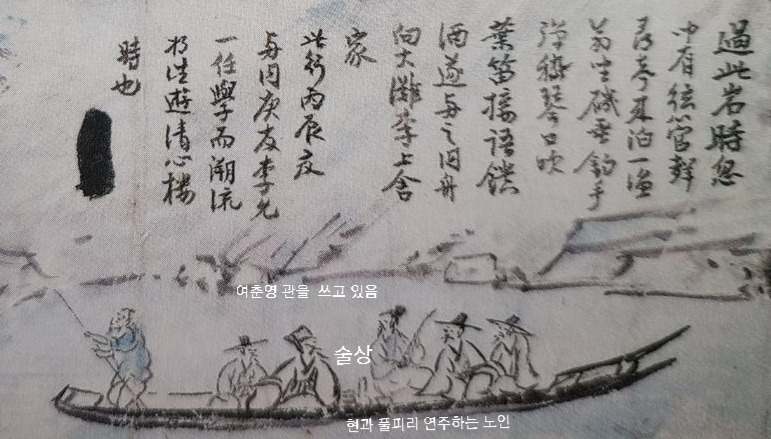 過此岩時忽
中有絃管聲
來泊一漁
翁坐磯垂釣手
彈嵇琴口吹
葉笛接語饋
酒遂与之同舟
向大灘李上舍
家
此行丙辰
与同庚友李允
一任學而溯流
遊清心樓
時也
여춘영 관을 쓰고 있음
술상
현과 풀피리 연주하는 노인